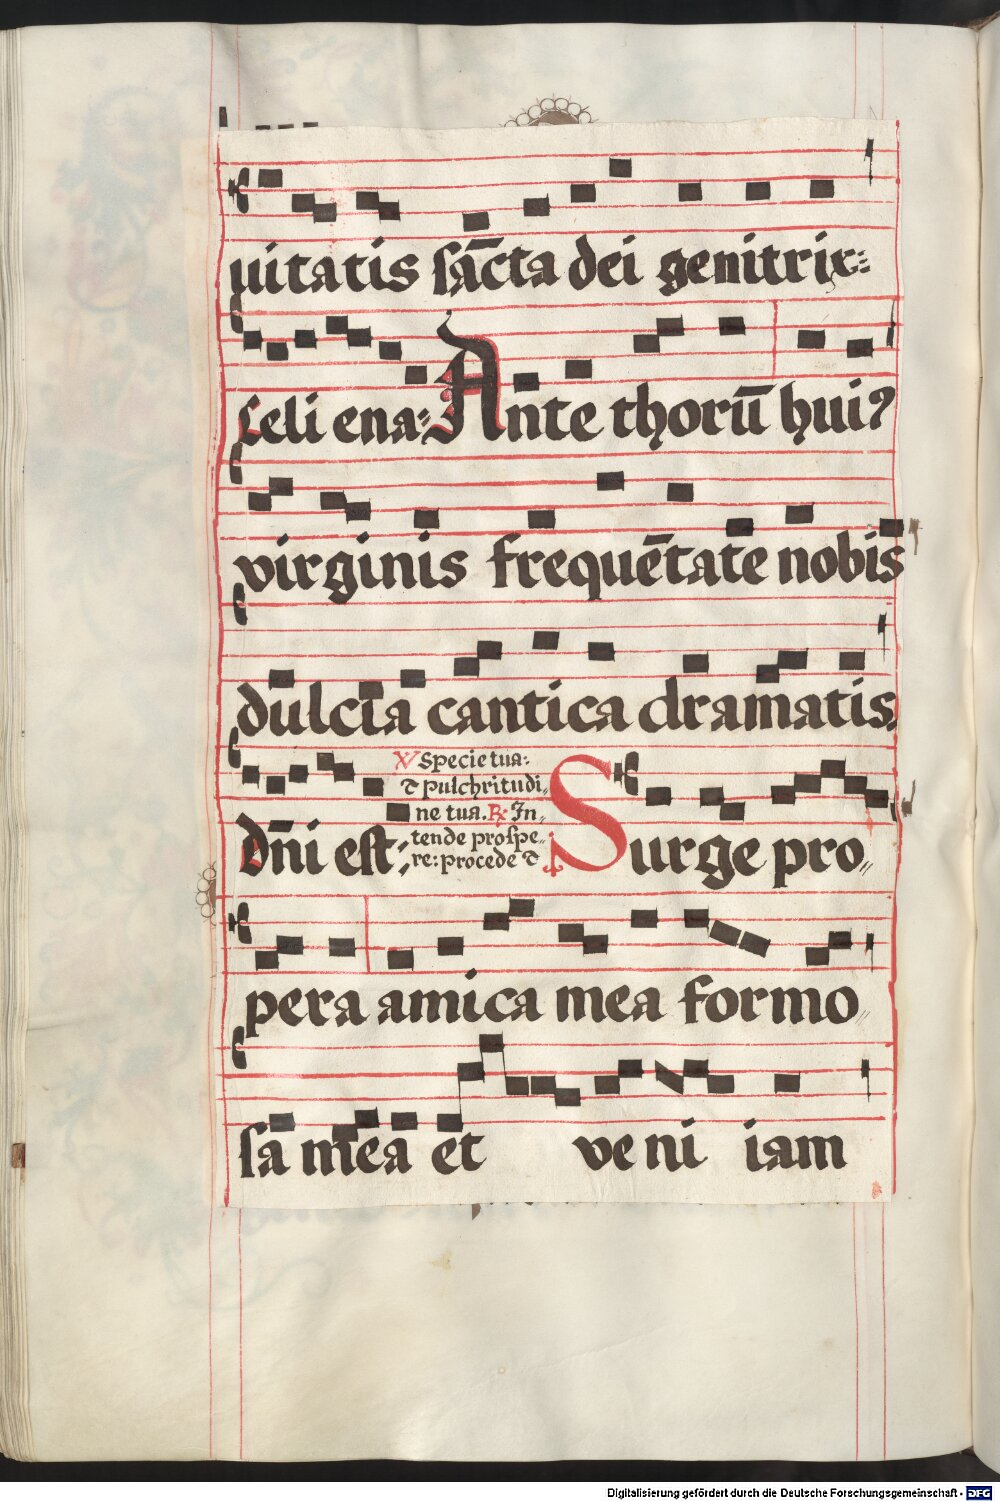 uitatis sāc̄ta dei genitrix:
Celi ena: Ante thorū hui⁹
virginis frequētate nobis
dulcia cantica dramatis
℣ Specie tua:
⁊ pulchritudi,,
ne tua. ℟ In,,
tende prospe,,
re: procede ⁊
dn̄i est: Surge pro,,
pera amica mea formo,,
sa mea et veni iam
Digitalisierung gefördert durch die Deutsche Forschungsgemeinschaft - DFG